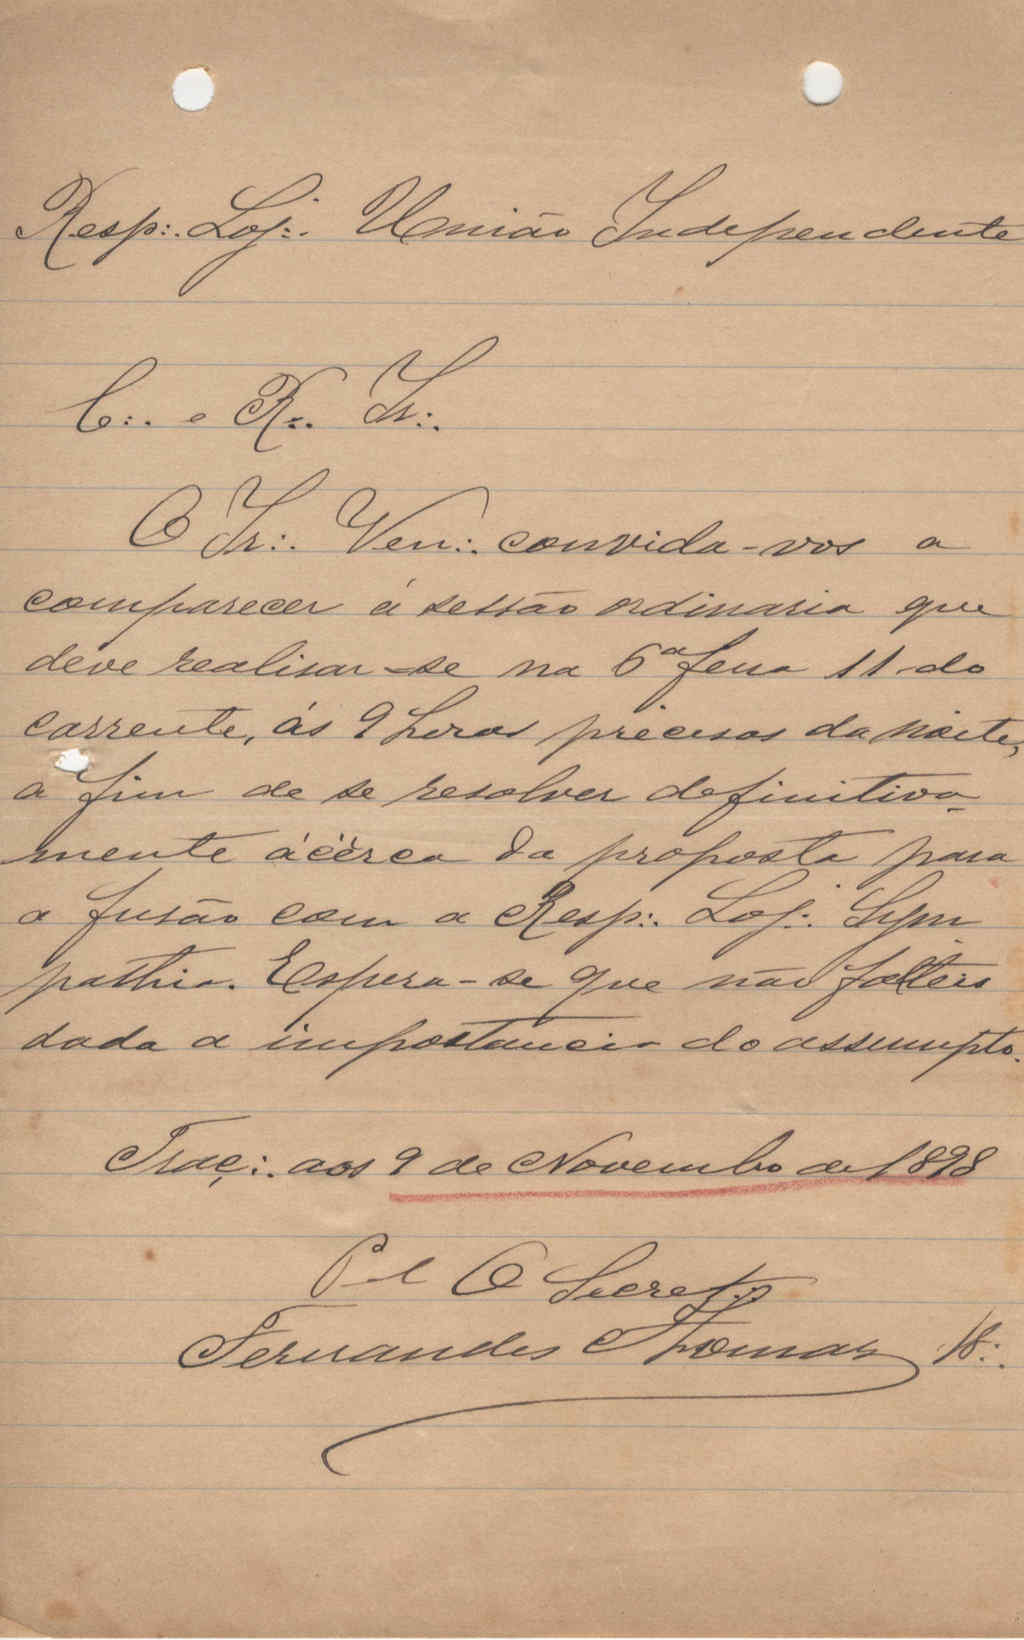 Resp∴ Loj∴ União Independente
C∴ e R∴ Ir∴
O Ir∴ Ven∴ convida-vos a
comparecer á sessão ordinaria que
deve realisar-se na 6ª feira 11 do
corrente, ás 9 horas precisas da noite,
a fim de se resolver definitiva-
mente ácêrca da proposta para
a fusão com a Resp∴ Loj∴ Sym
pathia. Espera-se que não falteis
dada a importancia do assumpto.
Traç∴ aos 9 de Novembro de 1898
Pel O Secret∴
Fernandes Thomaz 18∴